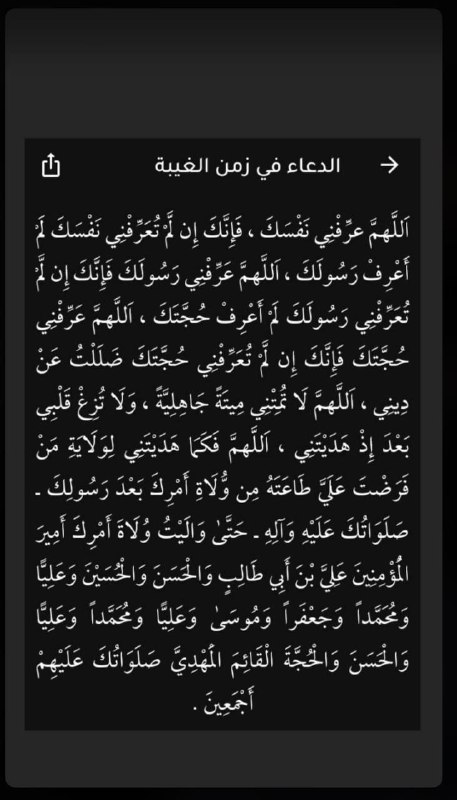 الدعاء في زمن الغيبة
اَللّهمَّ عرِّفْنِي نَفْسَكَ ، فَإِنَّكَ إِن لَّمْ تُعَرِّفْنِي نَفْسَكَ لَمْ
أَعْرِفْ رَسُولَكَ ، اَللّهمَّ عَرِّفْنِي رَسُولَكَ فَإِنَّكَ إِن لَّمْ
تُعَرِّفْنِي رَسُولَكَ لَمْ أَعْرِفْ حُجَّتَكَ ، اَللّهمَّ عَرِّفْنِي
حُجَّتَكَ فَإِنَّكَ إِن لَّمْ تُعَرِّفْنِي حُجَّتَكَ ضَلَلْتُ عَنْ
دِينِي ، اَللّهمَّ لَا تُمِتْنِي مِيتَةً جَاهِلِيَّةً ، وَلَا تُزِغْ قَلْبِي
بَعْدَ إِذْ هَدَيْتَنِي ، اَللّهمَّ فَكَمَا هَدَيْتَنِي لِوَلَايَةِ مَنْ
فَرَضْتَ عَلَيَّ طَاعَتَهُ مِن وُّلَاةِ أَمْرِكَ بَعْدَ رَسُولِكَ ـ
صَلَوَاتُكَ عَلَيْهِ وَآلِهِ ـ حَتَّىٰ وَالَيْتُ وُلَاةَ أَمْرِكَ أَمِيرَ
الْمُؤْمِنِينَ عَلِيَّ بْنَ أَبِي طَالِبٍ وَالْحَسَنَ وَالْحُسَيْنَ وَعَلِيًّا
وَمُحَمَّداً وَجَعْفَراً وَمُوسَىٰ وَعَلِيًّا وَمُحَمَّداً وَعَلِيًّا
وَالْحَسَنَ وَالْحُجَّةَ الْقَائِمَ الْمَهْدِيَّ صَلَوَاتُكَ عَلَيْهِمْ
أَجْمَعِينَ .